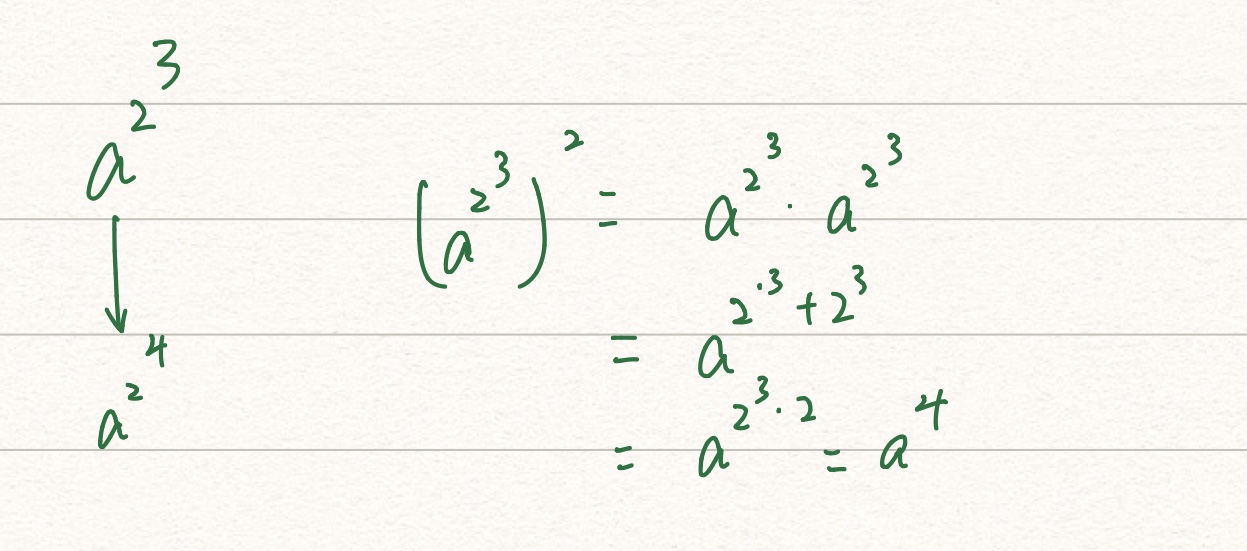 a^{2^3}
↓
a^{2^4}
(a^{2^3})^2 = a^{2^3} · a^{2^3}
= a^{2^{·3} + 2^3}
= a^{2^3 · 2} = a^4